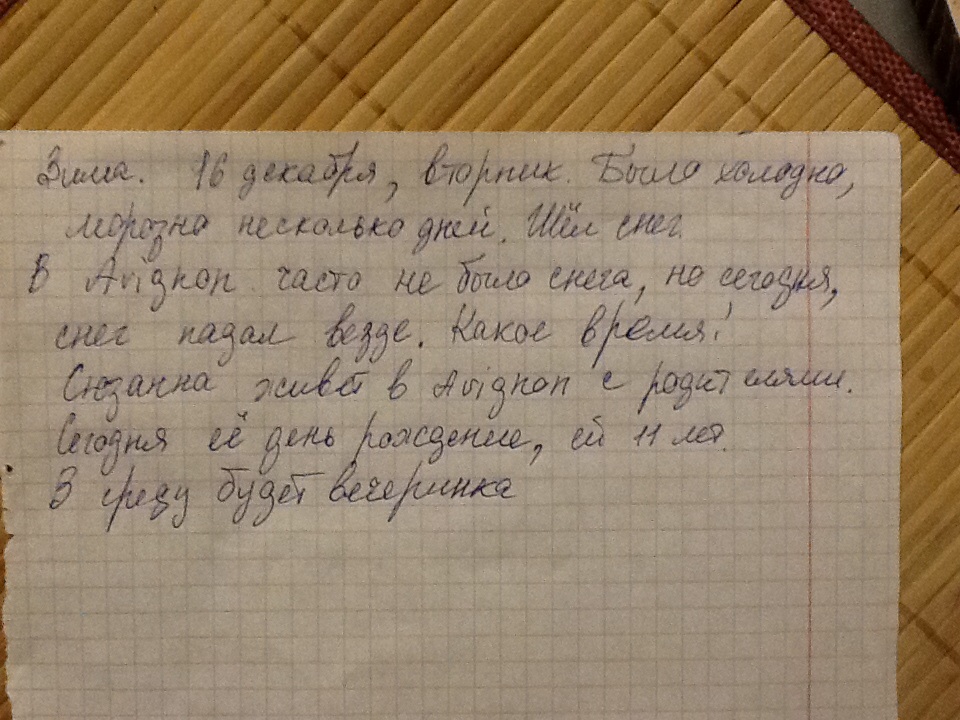 Зима. 16 декабря, вторник. Было холодно,
морозно несколько дней. Шёл снег.
В Avignon часто не было снега, но сегодня,
снег падал везде. Какое время!
Сюзанна живёт в Avignon с родителями.
Сегодня её день рождение, ей 11 лет.
В среду будет вечеринка